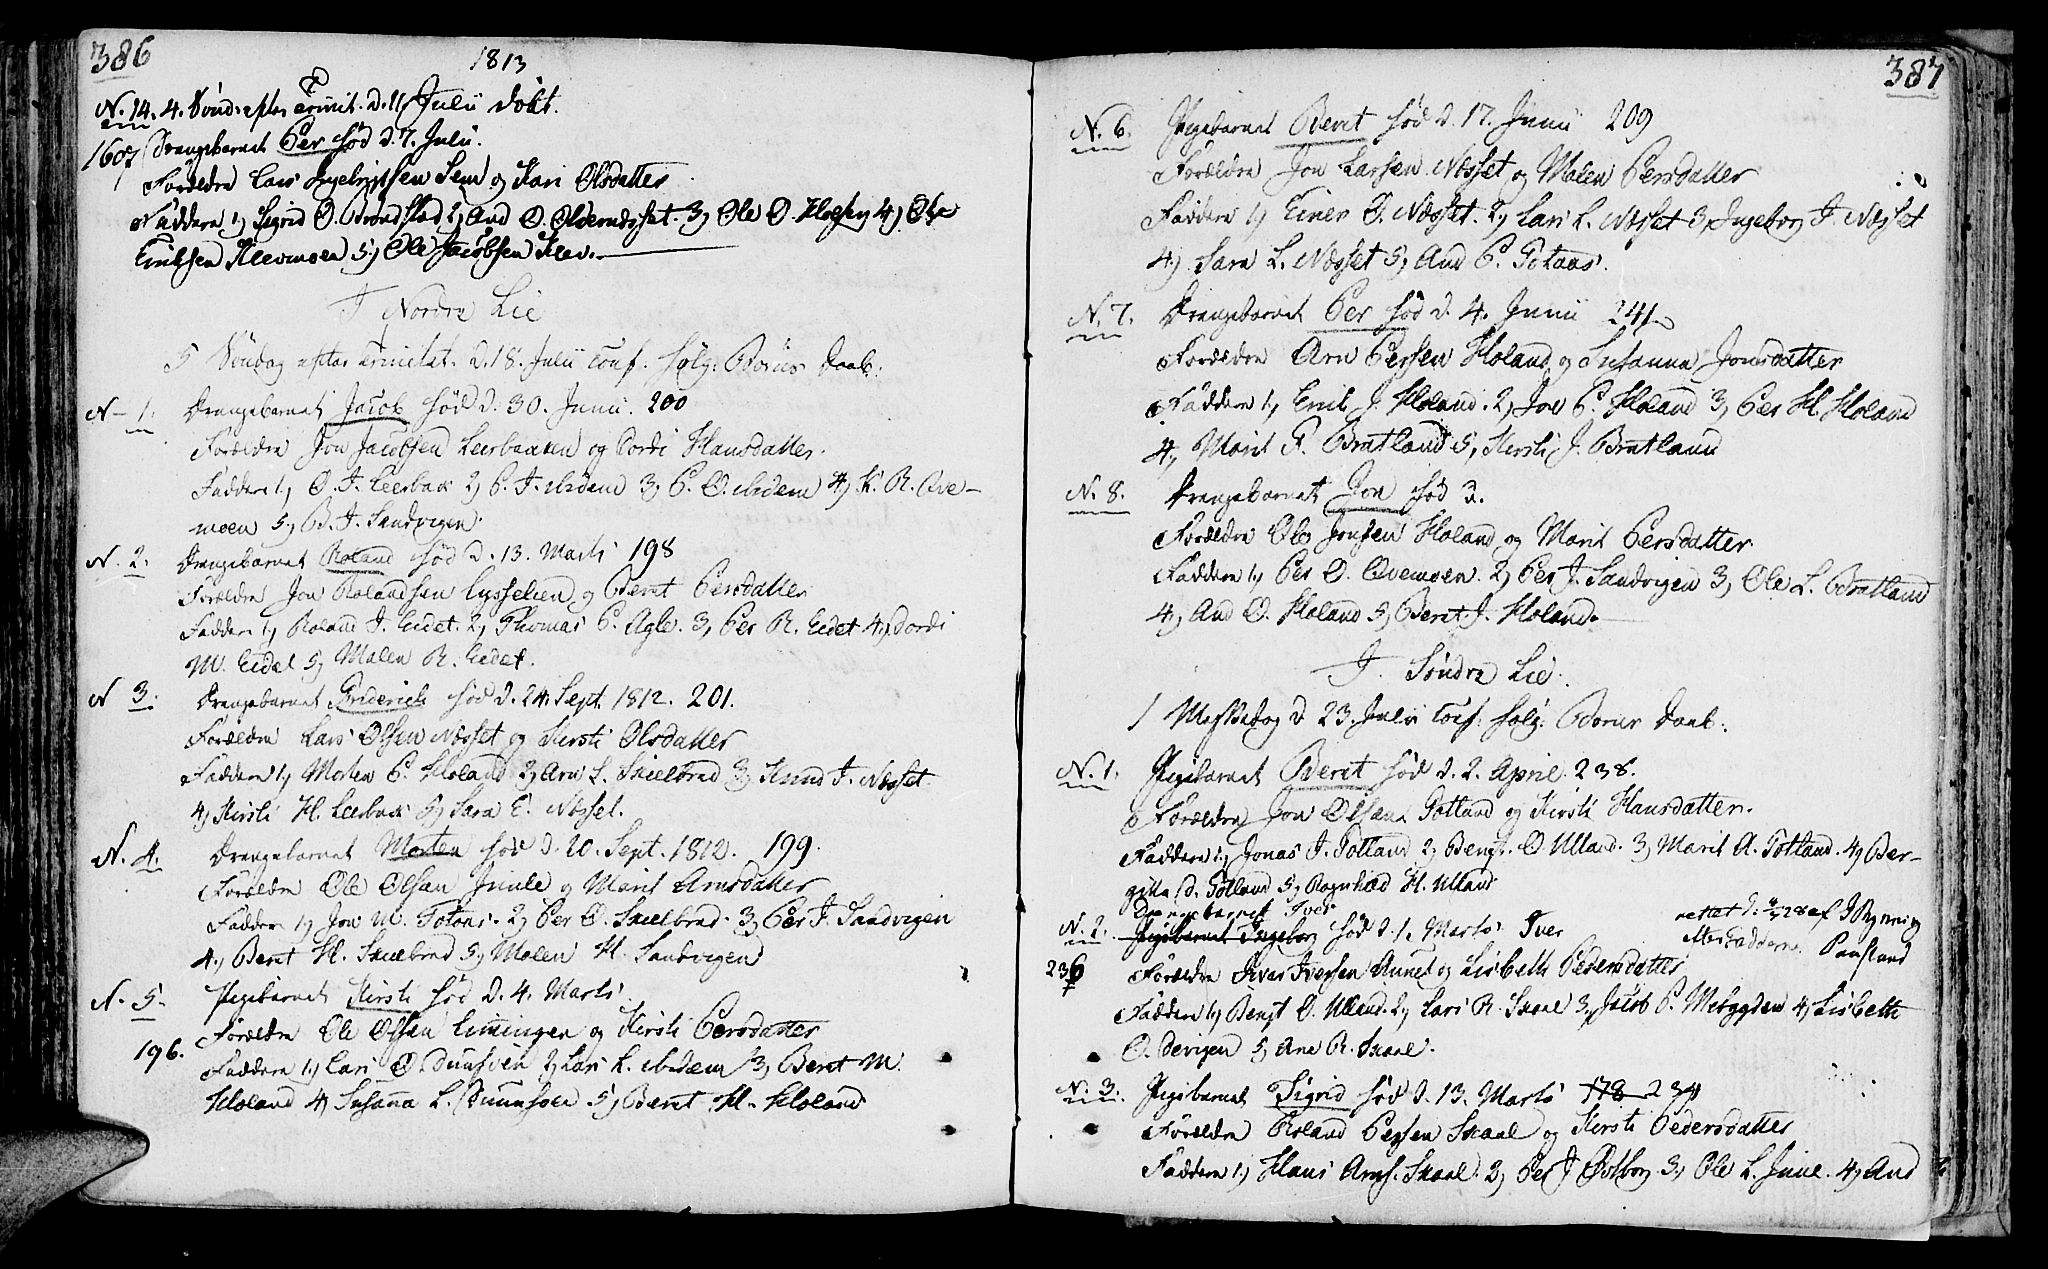 386
1813
N. 14. 4. Sönd: efter Trinit. d. 11 Julii döbt.
1607 Drengebarnet Per föd d. 7. Julii.
Forældre Lars Ingebrigtsen Sem og Kari Olsdatter
Faddere 1, Sigrid O. Brondstad 2, And O. Olvernæsset. 3, Ole O. Moesen 4, Ole
Erichsen Klevmoen 5, Ole Jacobsen Klev.
I Nordre Lie
5 Söndag efter Trinitat. d. 18. Julii Conf: holy: Börns Daab:
N 1. Drengebarnet Jacob föd d. 30. Junii. 200
Forældre Jon Jacobsen Leerbakken og Dordi Hansdatter.
Faddere 1, O. J. Leerbak 2, P. J. Mebden 3, P. O. Mebden 4, K. R. Ove-
moen 5, B. J. Sandvigen.
N. 2. Drengebarnet Roland föd d. 13. Marts 198
Forældre Jon Rolandsen Lysselien og Beret Persdatter
Faddere 1, Roland J. Eidet. 2, Thomas P. Agle. 3, Per R. Eidet 4, Dordi
M. Eidet 5, Malen R. Eidet.
N 3. Drengebarnet Friderich föd d. 24. Sept. 1812. 201.
Forældre Lars Olsen Næsset og Kersti Olsdatter
Faddere 1, Morten P. Holand 2, Arn L. Skielbred 3, Knud J. Næsset
4, Kirsti H. Leerbak 5, Sara E. Næsset.
N. 4. Drengebarnet Morten föd d. 20. Sept. 1812. 199.
Forældre Ole Olsen Jnule og Marit Arnsdatter
Faddere 1, Jon M. Totaas. 2, Per O. Skielbred. 3, Per J. Sandvigen
4, Beret H. Skielbred 5, Malen H. Sandvigen
N. 5. Pigebarnet Kirsti föd d. 4. Marts.
Forældre Ole Olsen Limingen og Kirsti Persdatter
196. Faddere 1, Lars O. Duunsoen 2, Lars L. Mebden 3, Beret M.
Holand 4, Susanna L. Duunsoen 5, Beret H. Holand
387
N. 6. Pigebarnet Beret föd d. 17. Junii 209
Forældre Jon Larsen Næsset og Malen Persdatter
Faddere 1, Einer O. Næsset. 2, Lars L. Næsset 3, Ingebor J. Næsset
4, Sara L. Næsset 5, And P. Totaas.
N. 7. Drengebarnet Per föd d. 4. Junii 241
Forældre Arn Persen Holand og Susanna Jonsdatter
Faddere 1, Erik J. Holand. 2, Joe P. Holand 3, Per H. Holand
4, Marit F. Bratland 5, Kersti J. Bratland
N. 8. Drengebarnet Jon föd d.
Forældre Ole Jonsen Holand og Marit Persdatter
Faddere 1, Per O. Ovemoen. 2, Per J. Sandvigen 3, Ole L. Bratland
4, And O. Holand 5, Beret J. Holand.
I Söndre Lie.
1 Messedag d 23. Julii Conf: holy: Börns Daab:
N. 1. Pigebarnet Beret föd d. 2. April. 238.
Forældre Jon Olsen Totland og Kirsti Hansdatter.
Faddere 1, Jonas J. Totland 2, Bengt O. Ulland. 3, Marit A. Totland. 4, Ber-
gitta O. Totland 5, Ragnhild H. Ulland
Drengebarnet Iver
N. 2. Pigebarnet Ingebor föd d. 1. Marts. Iver
rettet d. 4/5 28 af J Rynning
efter Fadderne Paasland
236 Forældre Ivar Iversen Aunet og Lisbeth Pedersdatter
Faddere 1, Bengt O. Ulland. 2, Lars R. Skaal 3, Jacob P. Mebygden 4, Lisbeth
O. Devigen 5, Ane R. Skaal.
N. 3. Pigebarnet Sigrid föd d. 13. Marts 178 234
Forældre Roland Persen Skaal og Kirsti Pedersdatter
Faddere 1, Hans Arns. Skaal. 2, Per J Östborg 3, Ole L. Jnue. 4, And